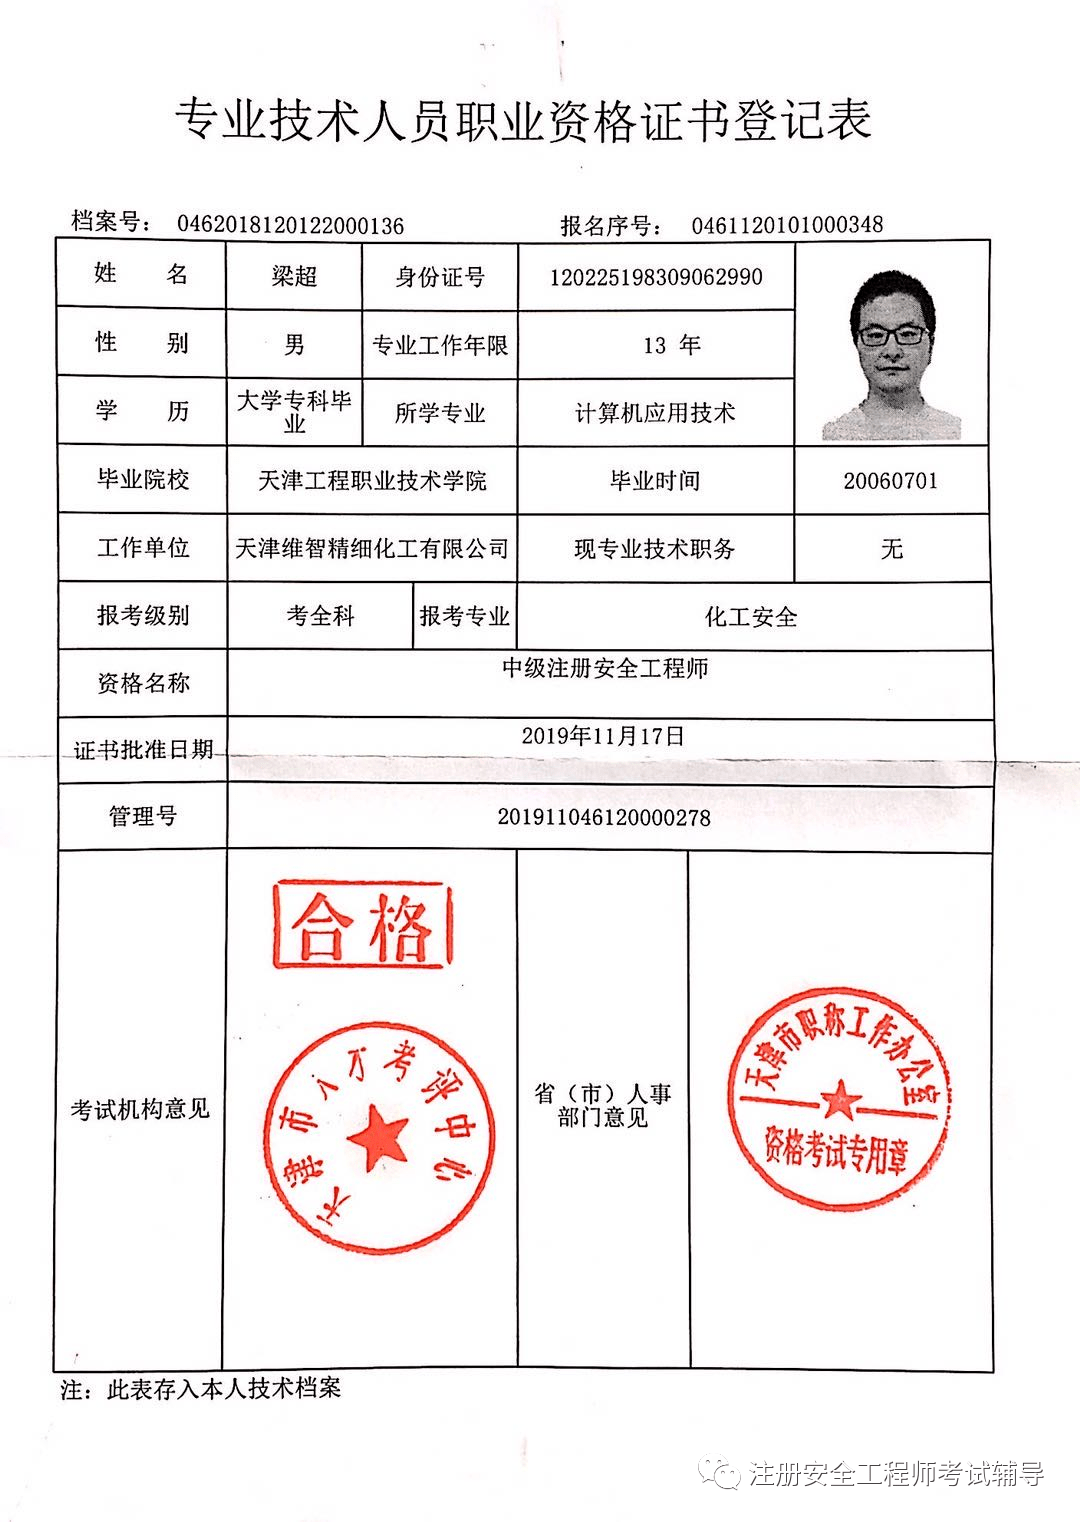 专业技术人员职业资格证书登记表
档案号： 0462018120122000136 报名序号： 0461120101000348
姓 名 梁超 身份证号 120225198309062990
性 别 男 专业工作年限 13 年
学 历 大学专科毕业 所学专业 计算机应用技术
毕业院校 天津工程职业技术学院 毕业时间 20060701
工作单位 天津维智精细化工有限公司 现专业技术职务 无
报考级别 考全科 报考专业 化工安全
资格名称 中级注册安全工程师
证书批准日期 2019年11月17日
管理号 201911046120000278
考试机构意见
合格
天津市人才考评中心
省（市）人事
部门意见
天津市职称工作办公室
资格考试专用章
注：此表存入本人技术档案
注册安全工程师考试辅导